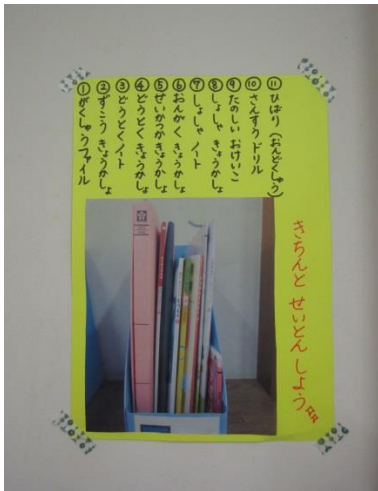 きちんと せいとん しよう
① がくしゅうファイル
② ずこう きょうかしょ
③ どうとくノート
④ どうとく きょうかしょ
⑤ せいかつか きょうかしょ
⑥ おんがく きょうかしょ
⑦ しょしゃ ノート
⑧ しょしゃ きょうかしょ
⑨ たのしい おけいこ
⑩ さんすう ドリル
⑪ ひばり(おんどくしゅう)